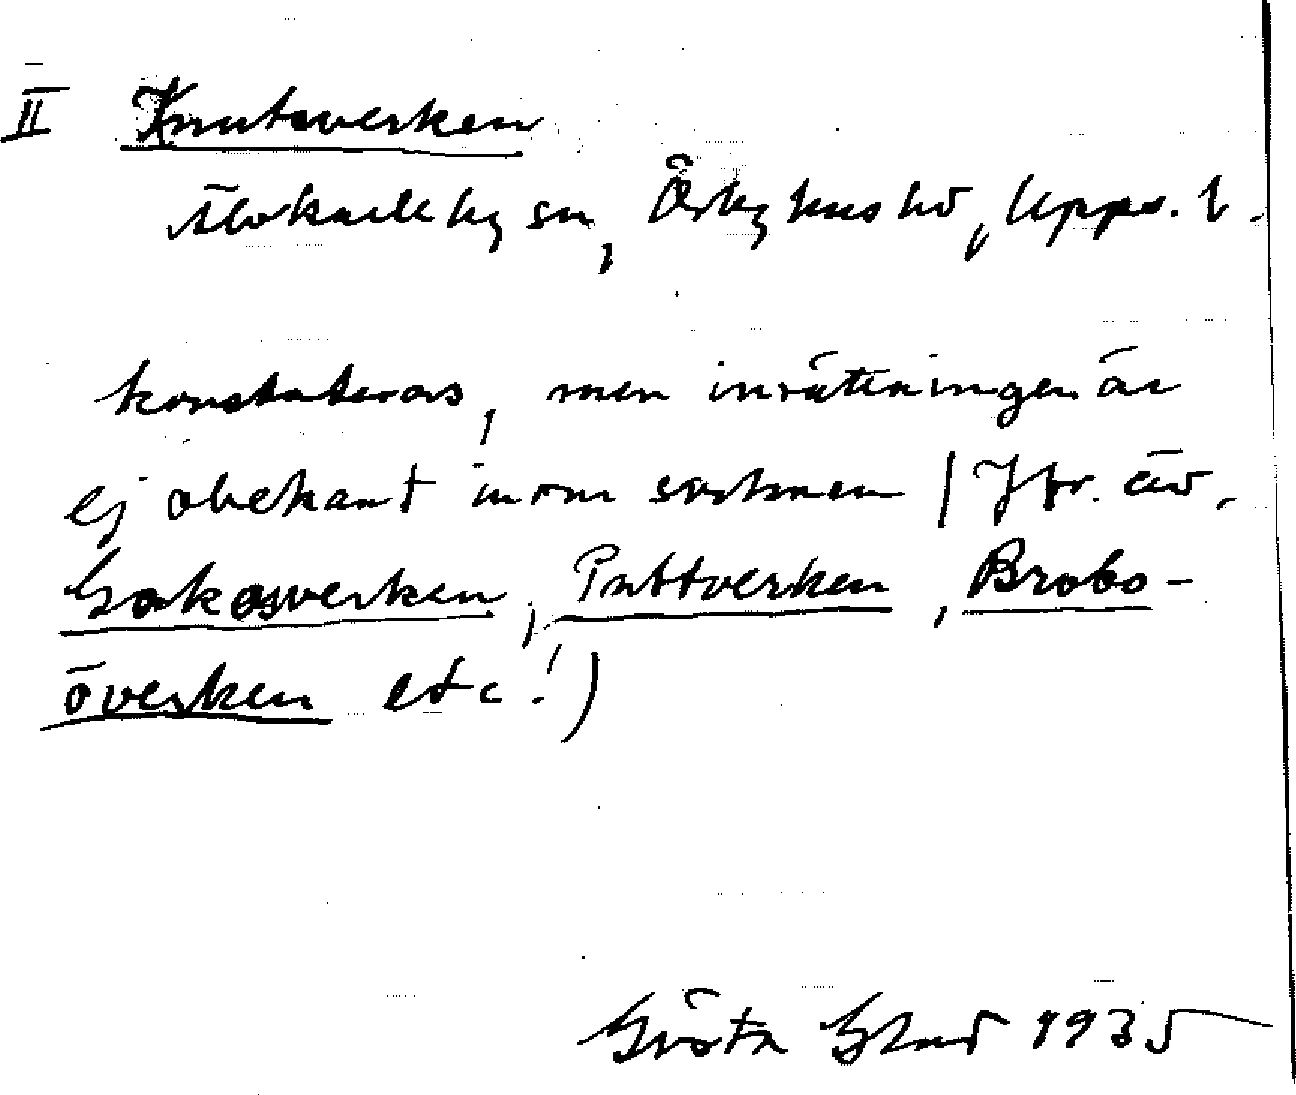 II Knutsverken
Älvkarleby sn, Örbyhus hd, Upps. l.
konstateras, men inrättningen är
ej obekant inom socknen (Jfr. äv.
Gokasverken, Puttverken, Brobo-
överken etc!)
Gösta Blad 1935